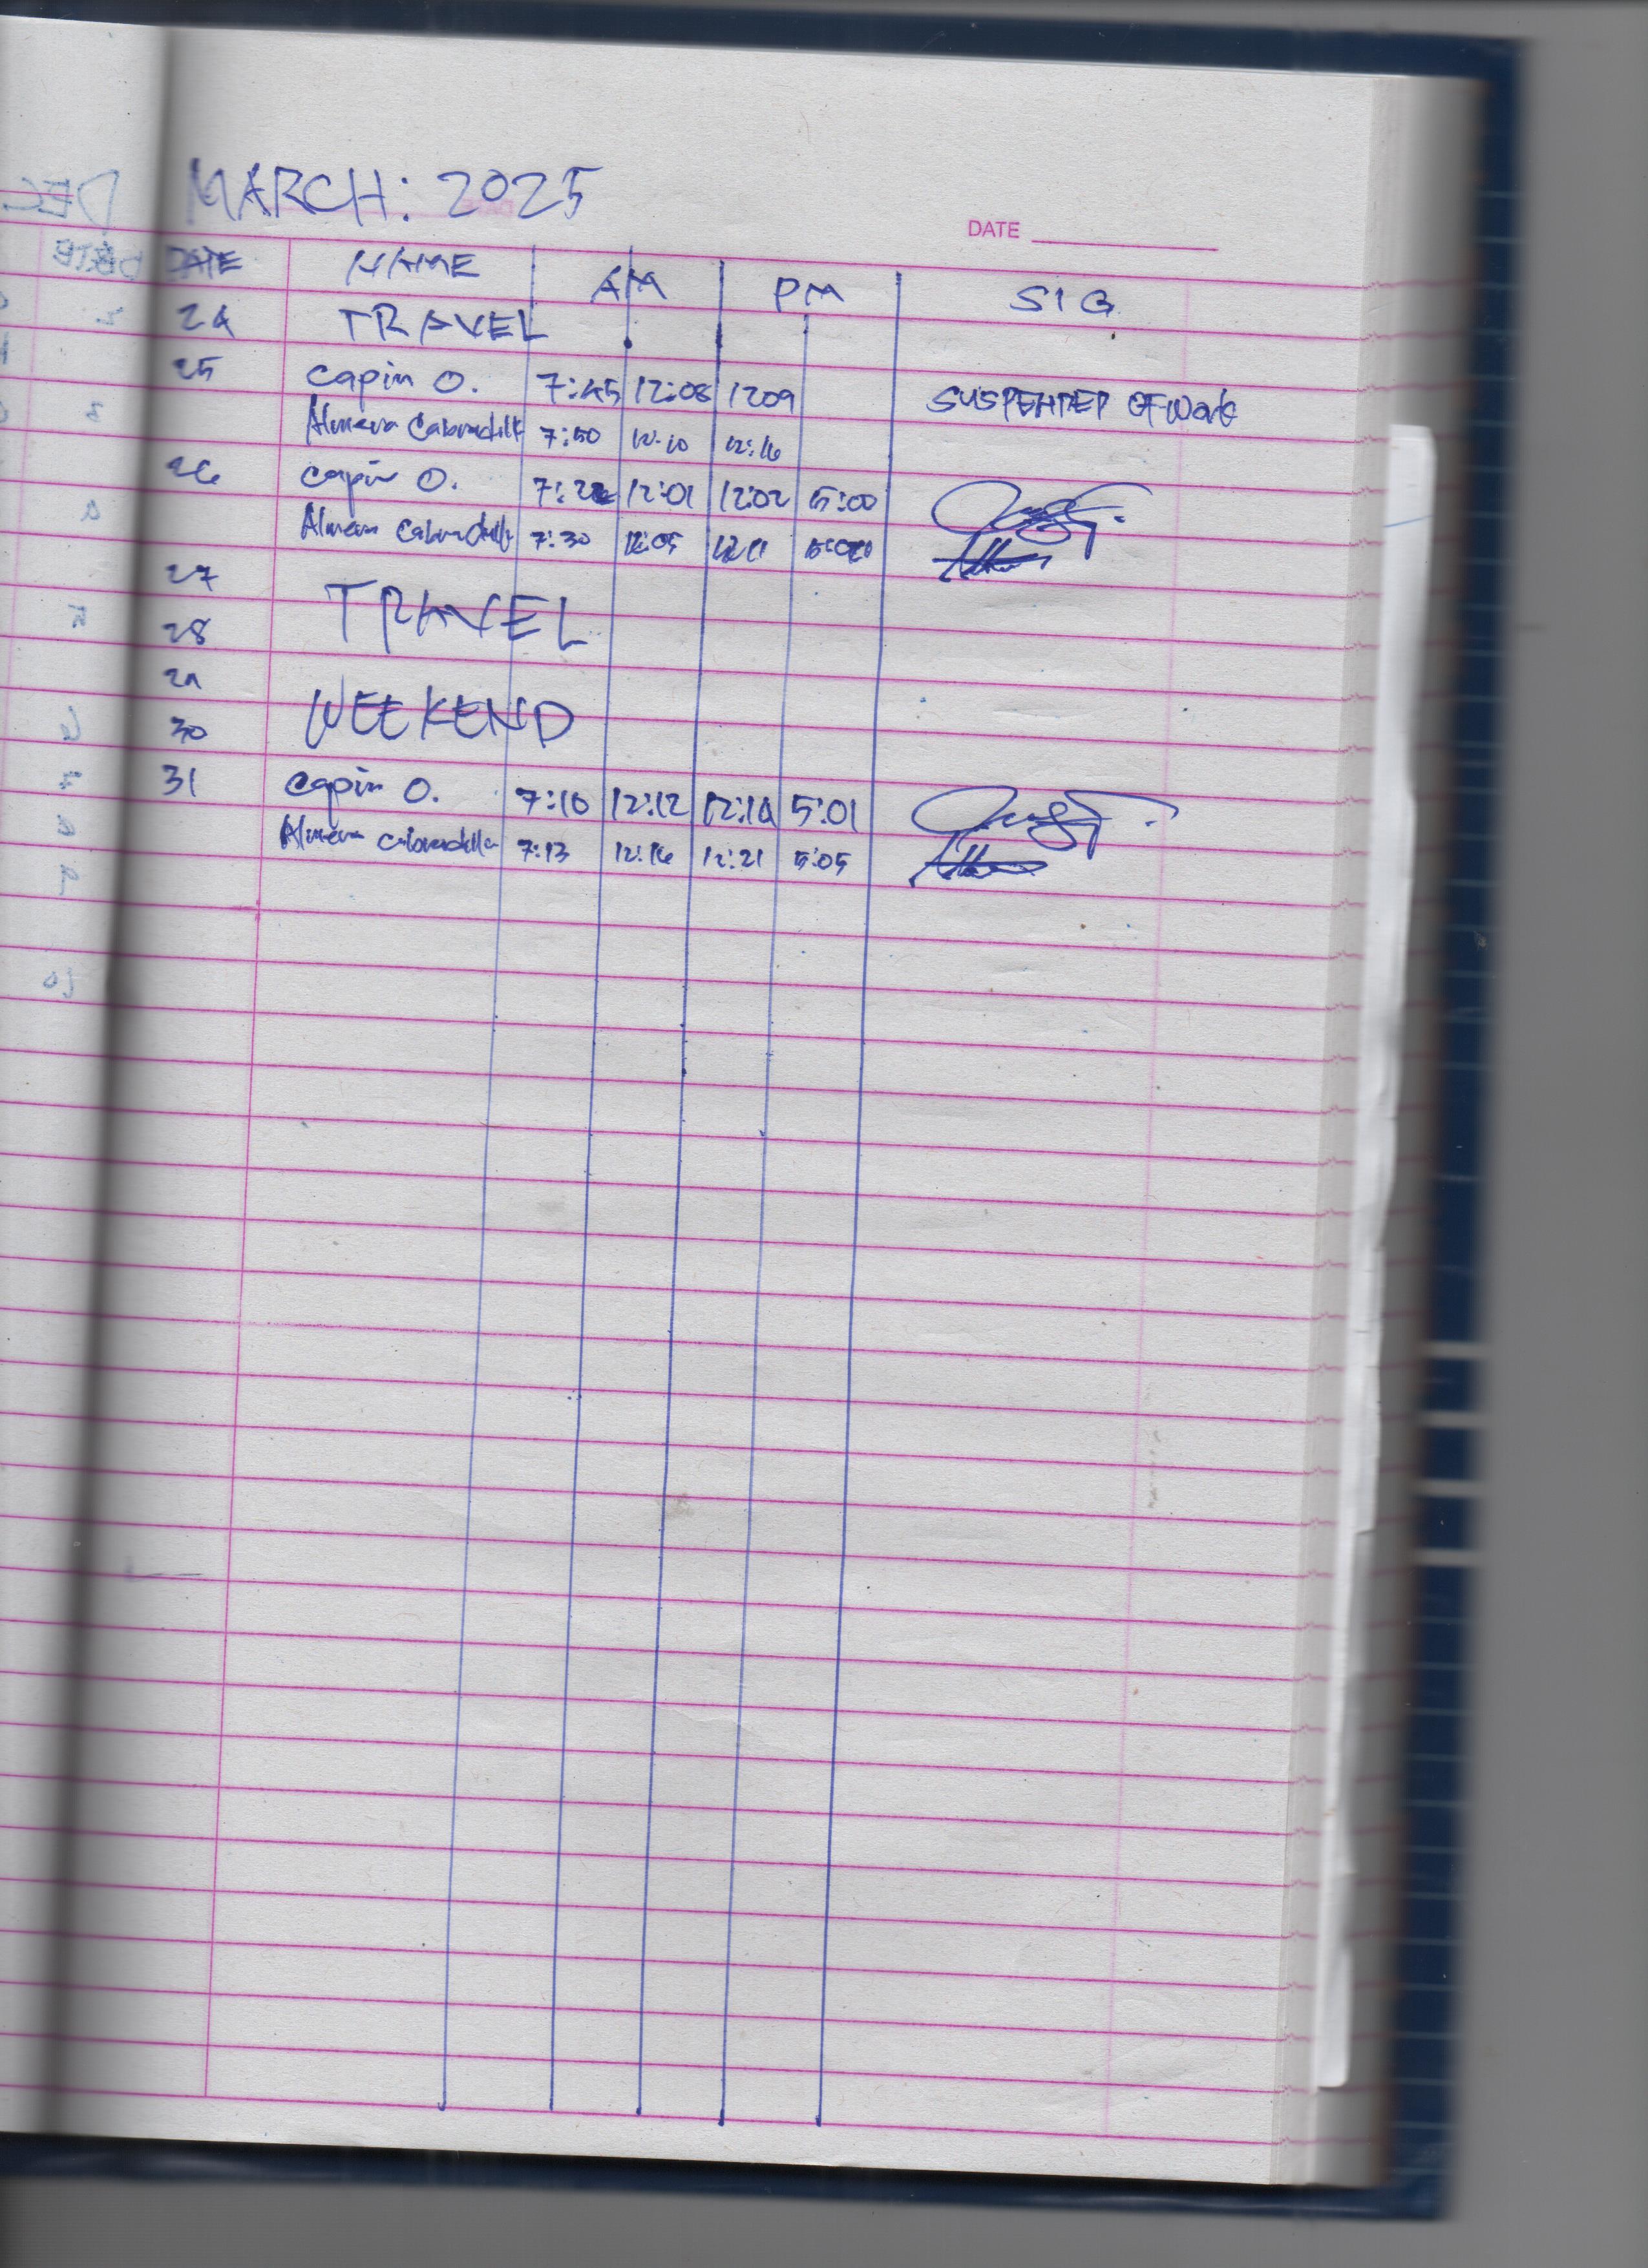 MARCH: 2025
DATE
DATE NAME AM PM SIG
24 TRAVEL
25 Capin O. 7:45 12:08 1209 SUSPENDED OF Work
Almera Cabradilla 7:50 12:10 12:16
26 Capin O. 7:22 12:01 12:02 5:00
Almera Cabradilla 7:30 12:05 12:11
27 TRAVEL
28
29 WEEKEND
30
31 Capin O. 7:10 12:12 12:14 5:01
Almera Cabradilla 7:13 12:16 12:21 5:05